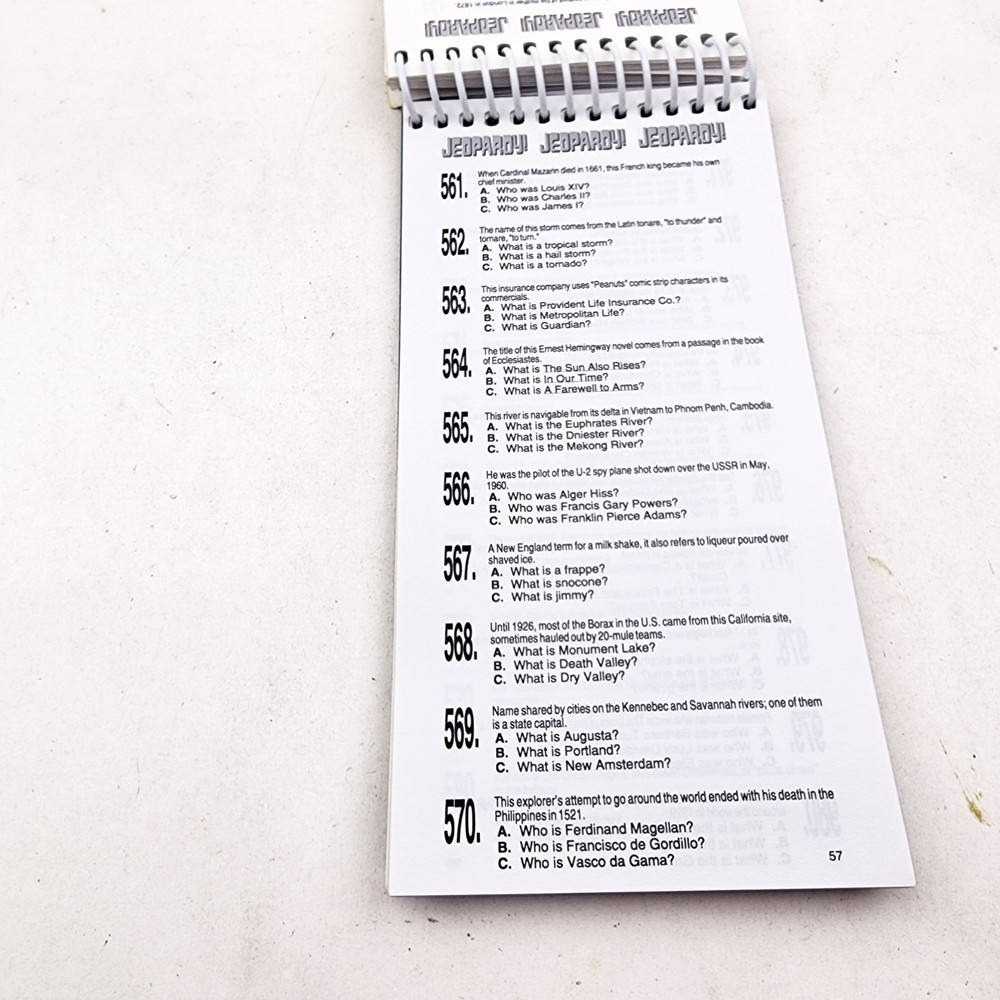 in London in 1872.
JEOPARDY! JEOPARDY! JEOPARDY!
JEOPARDY! JEOPARDY! JEOPARDY!
561. When Cardinal Mazarin died in 1661, this French king became his own
chief minister.
A. Who was Louis XIV?
B. Who was Charles II?
C. Who was James I?
562. The name of this storm comes from the Latin tonare, "to thunder" and
tornare, "to turn."
A. What is a tropical storm?
B. What is a hail storm?
C. What is a tornado?
563. This insurance company uses "Peanuts" comic strip characters in its
commercials.
A. What is Provident Life Insurance Co.?
B. What is Metropolitan Life?
C. What is Guardian?
564. The title of this Ernest Hemingway novel comes from a passage in the book
of Ecclesiastes.
A. What is The Sun Also Rises?
B. What is In Our Time?
C. What is A Farewell to Arms?
565. This river is navigable from its delta in Vietnam to Phnom Penh, Cambodia.
A. What is the Euphrates River?
B. What is the Dniester River?
C. What is the Mekong River?
566. He was the pilot of the U-2 spy plane shot down over the USSR in May,
1960.
A. Who was Alger Hiss?
B. Who was Francis Gary Powers?
C. Who was Franklin Pierce Adams?
567. A New England term for a milk shake, it also refers to liqueur poured over
shaved ice.
A. What is a frappe?
B. What is snocone?
C. What is jimmy?
568. Until 1926, most of the Borax in the U.S. came from this California site,
sometimes hauled out by 20-mule teams.
A. What is Monument Lake?
B. What is Death Valley?
C. What is Dry Valley?
569. Name shared by cities on the Kennebec and Savannah rivers; one of them
is a state capital.
A. What is Augusta?
B. What is Portland?
C. What is New Amsterdam?
570. This explorer's attempt to go around the world ended with his death in the
Philippines in 1521.
A. Who is Ferdinand Magellan?
B. Who is Francisco de Gordillo?
C. Who is Vasco da Gama?
57